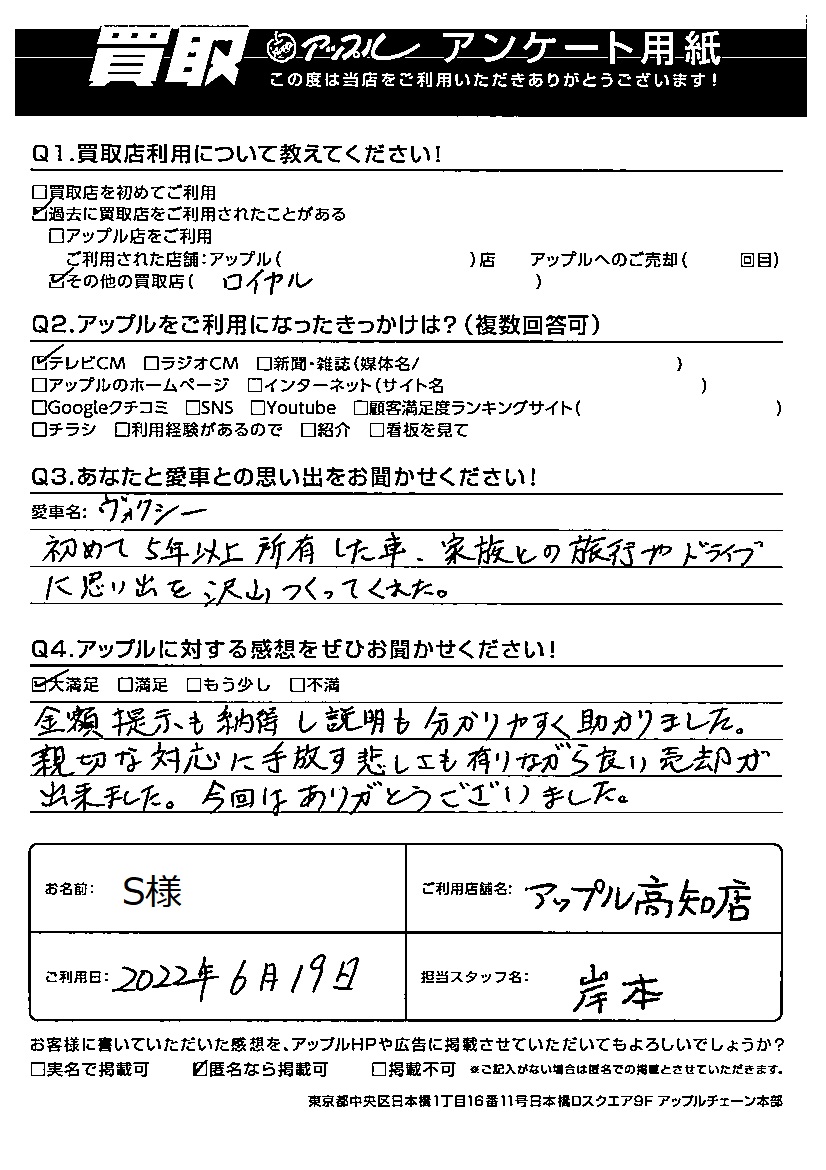 買取 アップル アンケート用紙
この度は当店をご利用いただきありがとうございます!
Q1.買取店利用について教えてください!
□買取店を初めてご利用
☑過去に買取店をご利用されたことがある
□アップル店をご利用
ご利用された店舗:アップル( )店 アップルへのご売却( 回目)
☑その他の買取店( ロイヤル )
Q2.アップルをご利用になったきっかけは?(複数回答可)
☑テレビCM □ラジオCM □新聞・雑誌(媒体名/ )
□アップルのホームページ □インターネット(サイト名 )
□Googleクチコミ □SNS □Youtube □顧客満足度ランキングサイト( )
□チラシ □利用経験があるので □紹介 □看板を見て
Q3.あなたと愛車との思い出をお聞かせください!
愛車名: ヴォクシー
初めて5年以上所有した車、家族との旅行やドライブ
に思い出を沢山つくってくれた。
Q4.アップルに対する感想をぜひお聞かせください!
☑大満足 □満足 □もう少し □不満
金額提示も納得し説明も分かりやすく助かりました。
親切な対応に手放す悲しさも有りながら良い売却が
出来ました。今回はありがとうございました。
お名前: S様 ご利用店舗名: アップル高知店
ご利用日: 2022年6月19日 担当スタッフ名: 岸本
お客様に書いていただいた感想を、アップルHPや広告に掲載させていただいてもよろしいでしょうか?
□実名で掲載可 ☑匿名なら掲載可 □掲載不可 ※ご記入がない場合は匿名での掲載とさせていただきます。
東京都中央区日本橋1丁目16番11号日本橋ロスクエア9F アップルチェーン本部